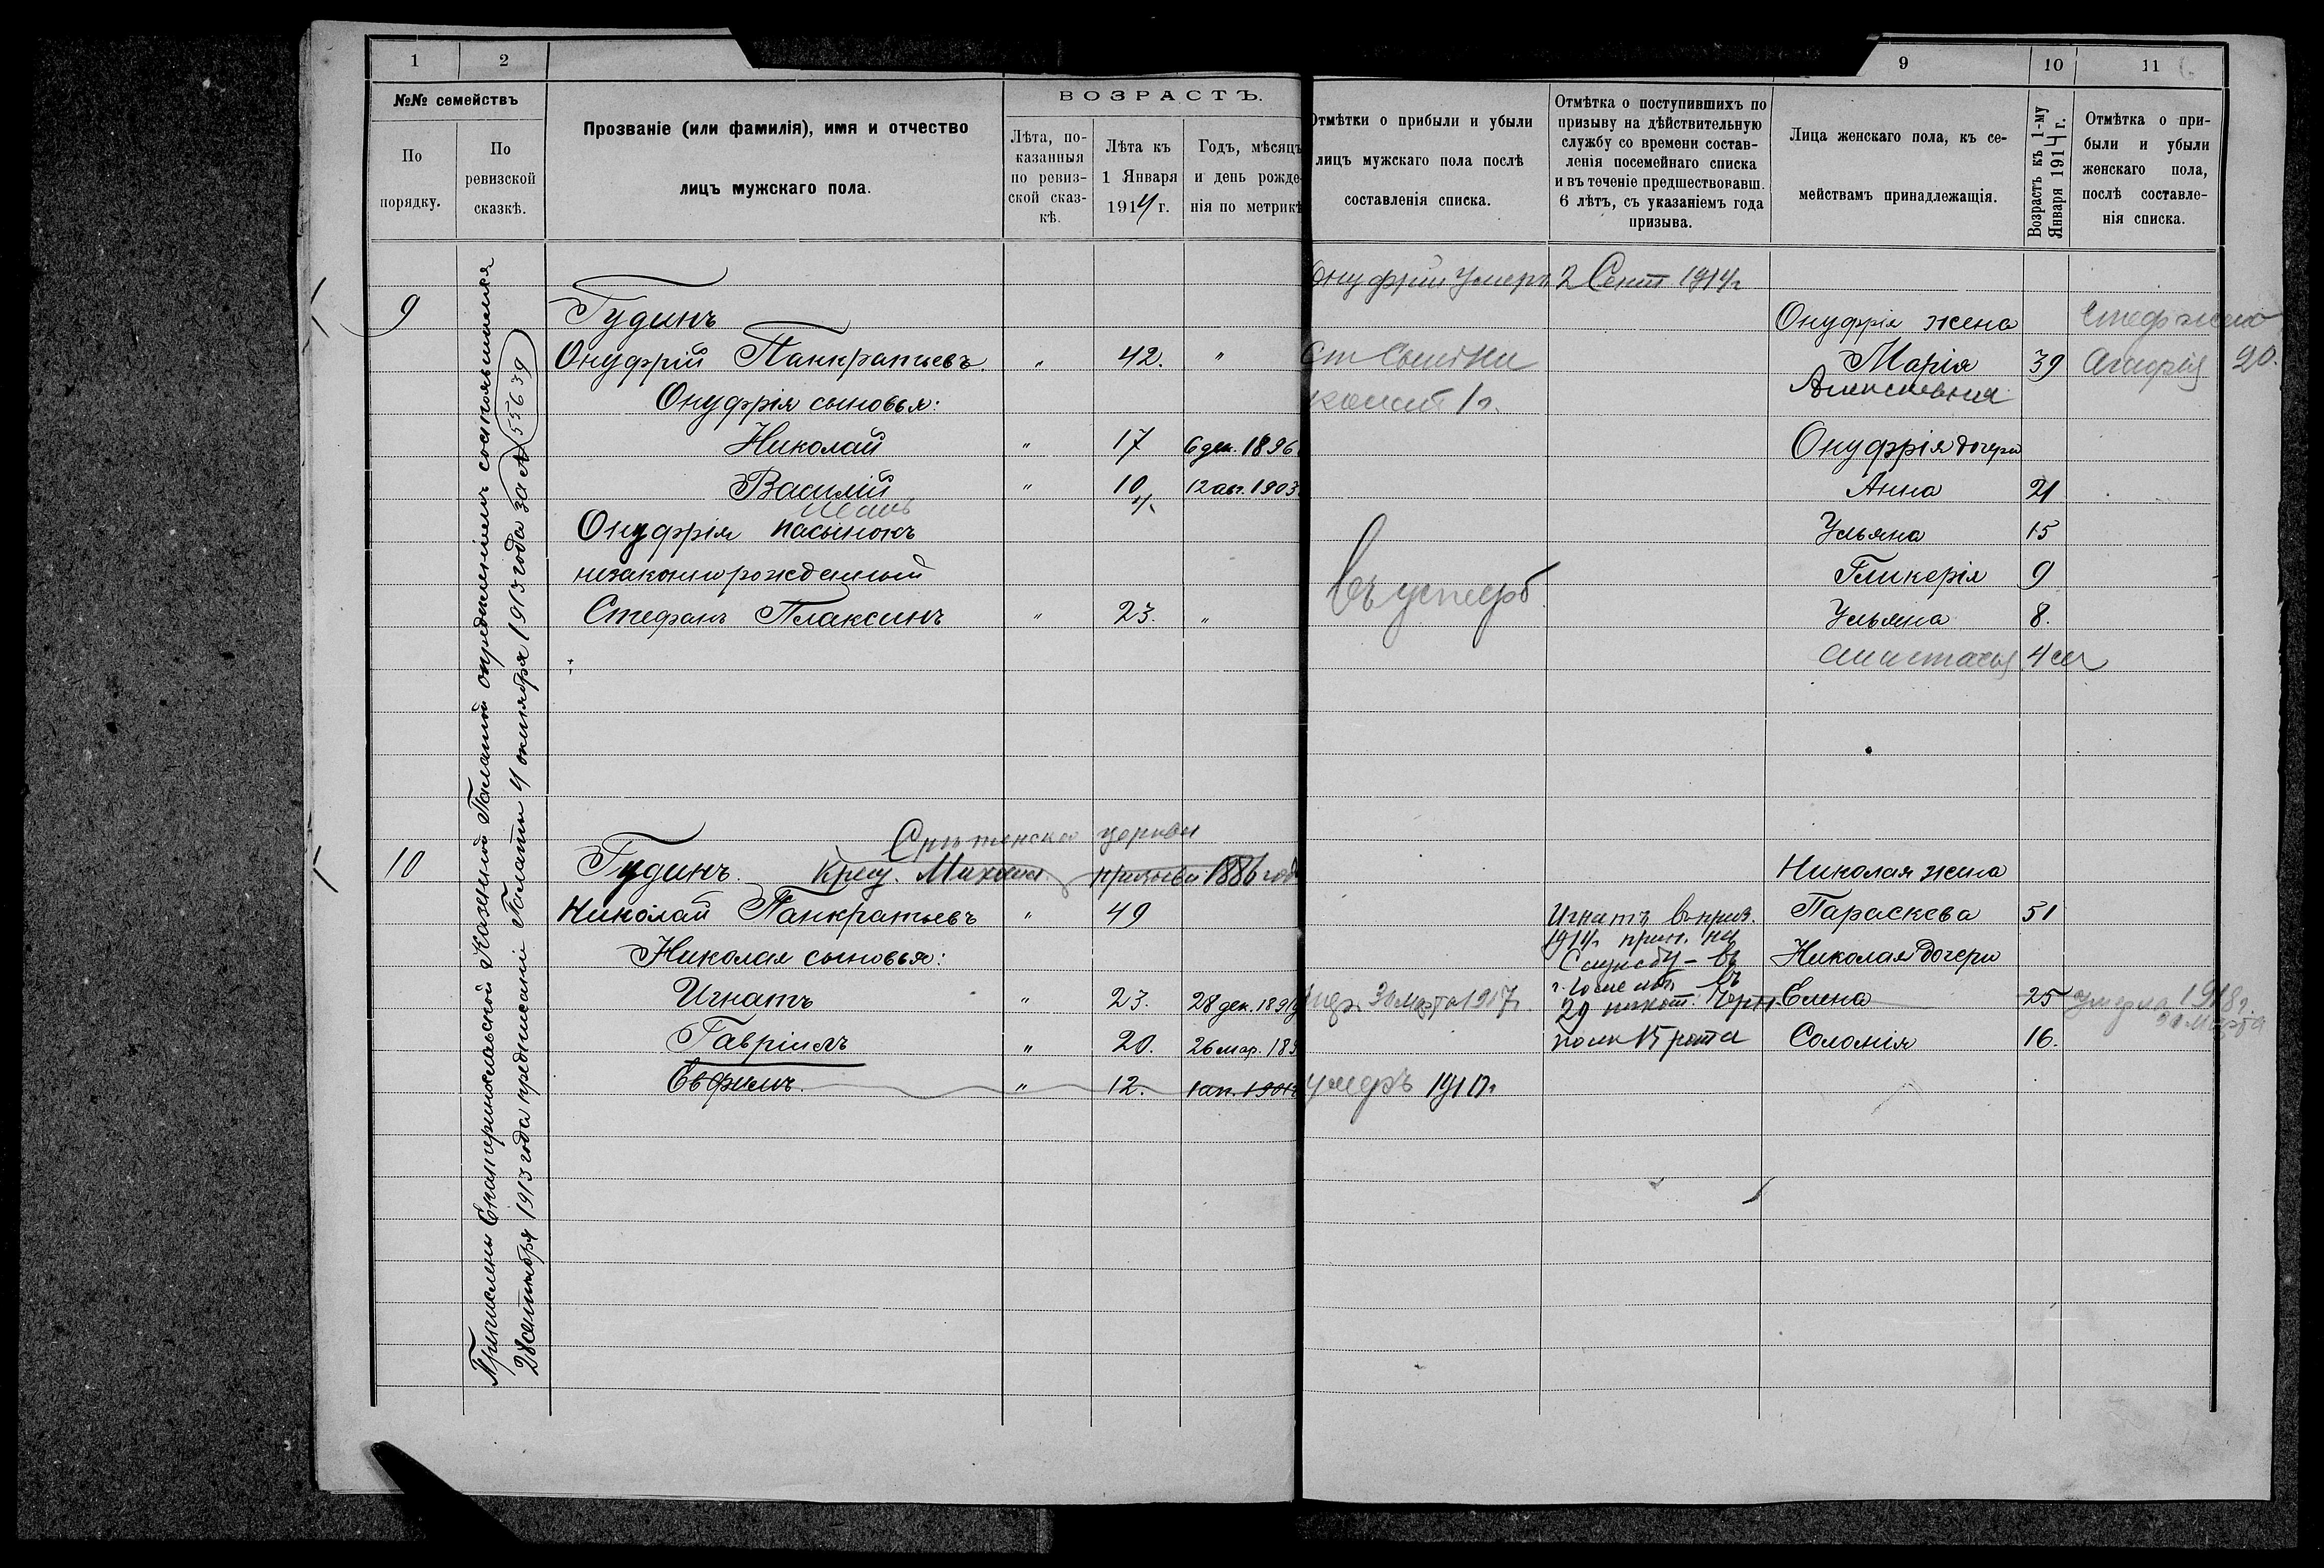 1 2 9 10 11
№№ семействъ
По порядку.
По ревизской сказкѣ.
Прозваніе (или фамилія), имя и отчество
лицъ мужскаго пола.
ВОЗРАСТЪ.
Лѣта, по-
казанныя
по ревиз-
ской сказ-
кѣ.
Лѣта къ
1 Января
1914 г.
Годъ, мѣсяцъ
и день рожде-
нія по метрикѣ
Отмѣтки о прибыли и убыли
лицъ мужскаго пола послѣ
составленія списка.
Отмѣтка о поступившихъ по
призыву на дѣйствительную
службу со времени состав-
ленія посемейнаго списка
и въ теченіе предшествовавш.
6 лѣтъ, съ указаніемъ года
призыва.
Лица женскаго пола, къ се-
мействамъ принадлежащія.
Возрастъ къ 1-му
Января 1914 г.
Отмѣтка о при-
были и убыли
женскаго пола,
послѣ составле-
нія списка.
Причислены Екатеринославской Казенной Палатой опредѣленіемъ состоявшимся
28 сентября 1913 года предписаніе Палаты 4 октября 1913 года за № 55639
Онуфрий умеръ 2 Сент 1914 г
9 Гудинъ Онуфрія жена Стеф жена
Онуфрій Панкратьевъ " 42. " Марія 39 Агафія 20.
Алексеевна
Онуфрія сыновья: 1 г.
Николай " 17 6 дек. 1896 Онуфрія дочери
Василій " 10 12 авг. 1903 Анна 21
4
Онуфрія пасынокъ Ульяна 15
незаконнорожденный Гликерія 9
Стефанъ Плаксинъ " 23. " Ульяна 8.
Анастасья 4 м
Срѣтенска церкви
10 Гудинъ. Крещ. Михаил 1886 год Николая жена
Николай Панкратьевъ " 49 Параскева 51
Игнатъ въ приз.
1914 г. прин. на
Службу - въ
Николая сыновья: Николая дочери
Игнатъ " 23. 28 дек. 1891 30 Марта 1917 г. 29 Елена 25 умерла 1918 г.
31 Марта
Гавріилъ " 20. 26 мар. 189 полк 15 рота Соломія 16.
Евфимъ " 12. 1 ап. 1901 умеръ 1910 г